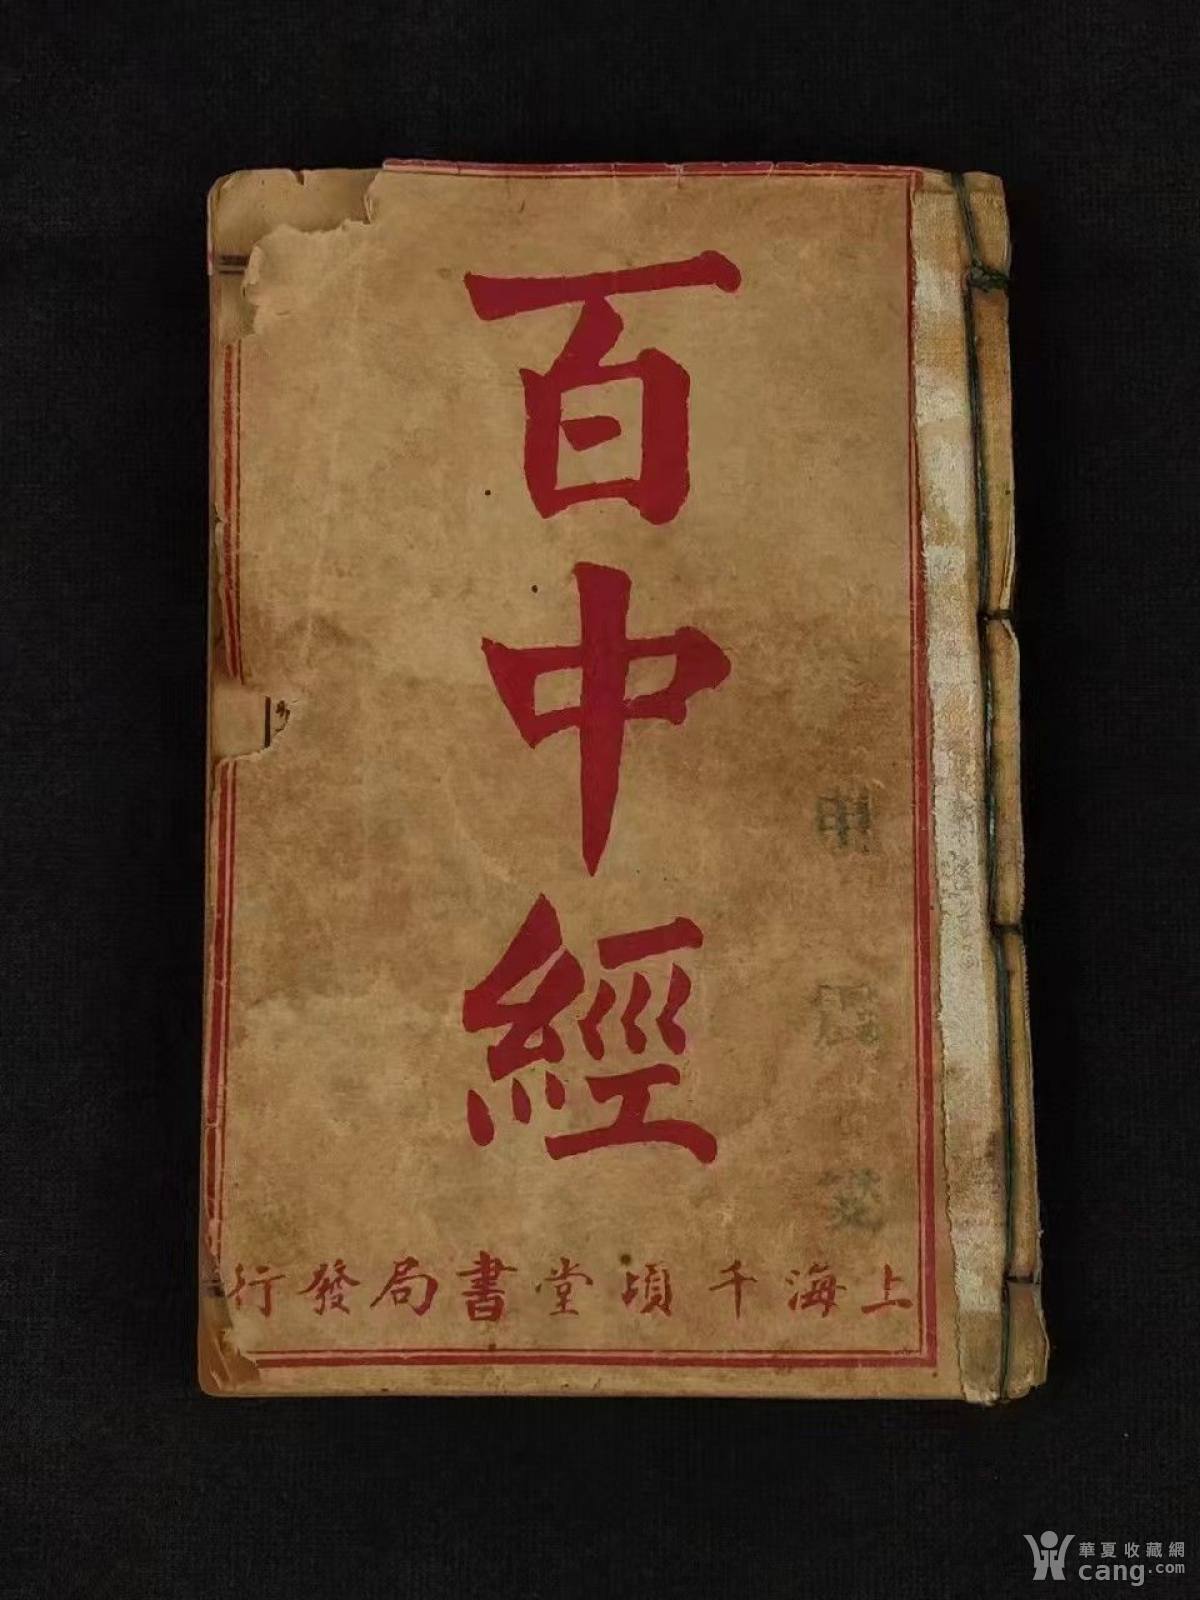 百中經
上海千頃堂書局發行
華夏收藏網
cang.com